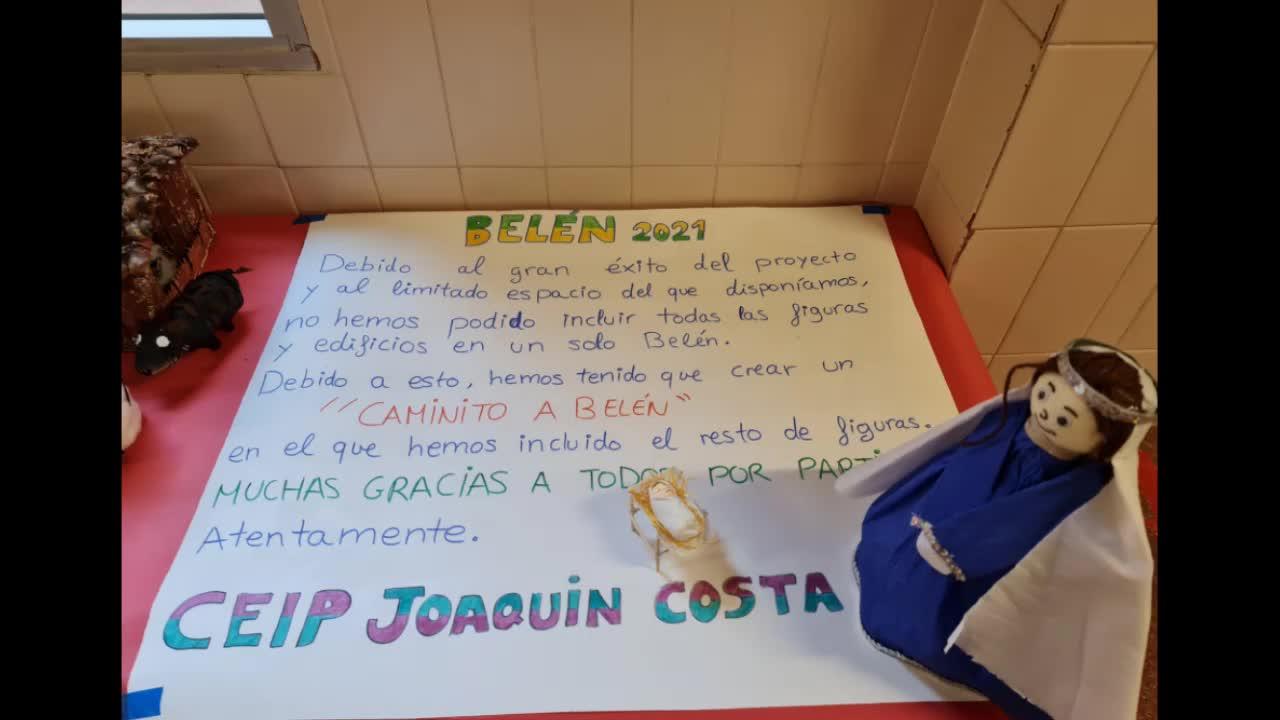 BELÉN 2021
Debido al gran éxito del proyecto
y al limitado espacio del que disponíamos,
no hemos podido incluir todas las figuras
y edificios en un solo Belén.
Debido a esto, hemos tenido que crear un
"CAMINITO A BELÉN"
en el que hemos incluido el resto de figuras.
MUCHAS GRACIAS A TODOS POR
Atentamente.
CEIP JOAQUIN COSTA